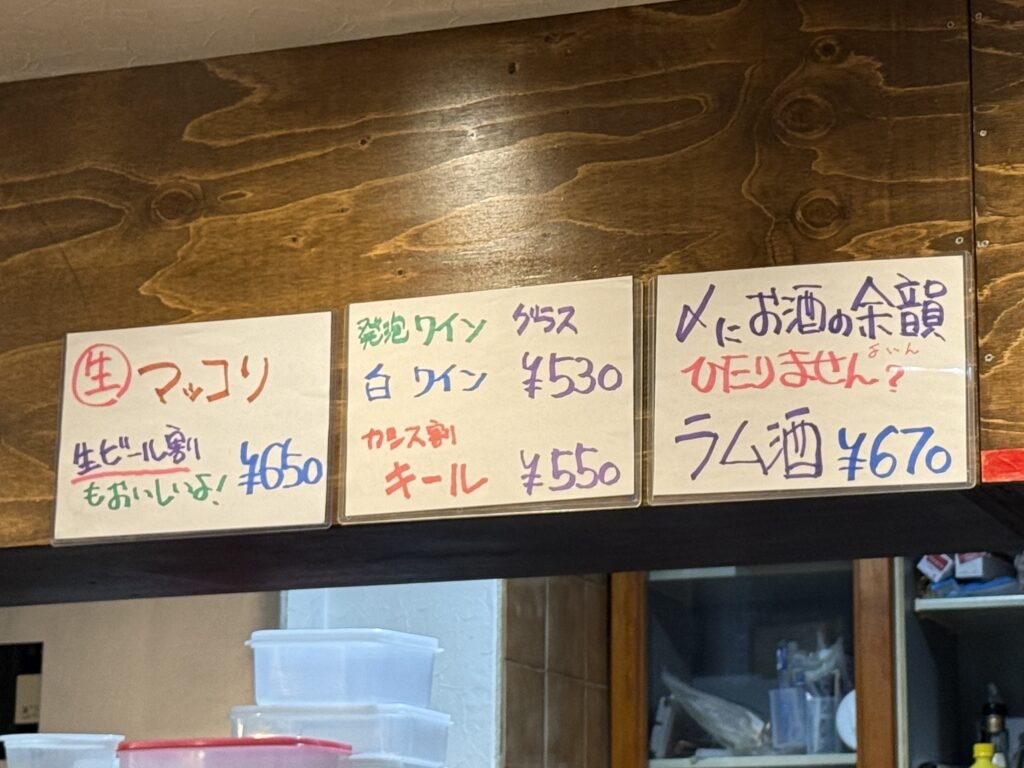 生 マッコリ
生ビール割
もおいしいよ!
¥650
発泡ワイン グラス
白 ワイン ¥530
カシス割
キール ¥550
〆にお酒の余韻
よいん
ひたりません?
ラム酒 ¥670